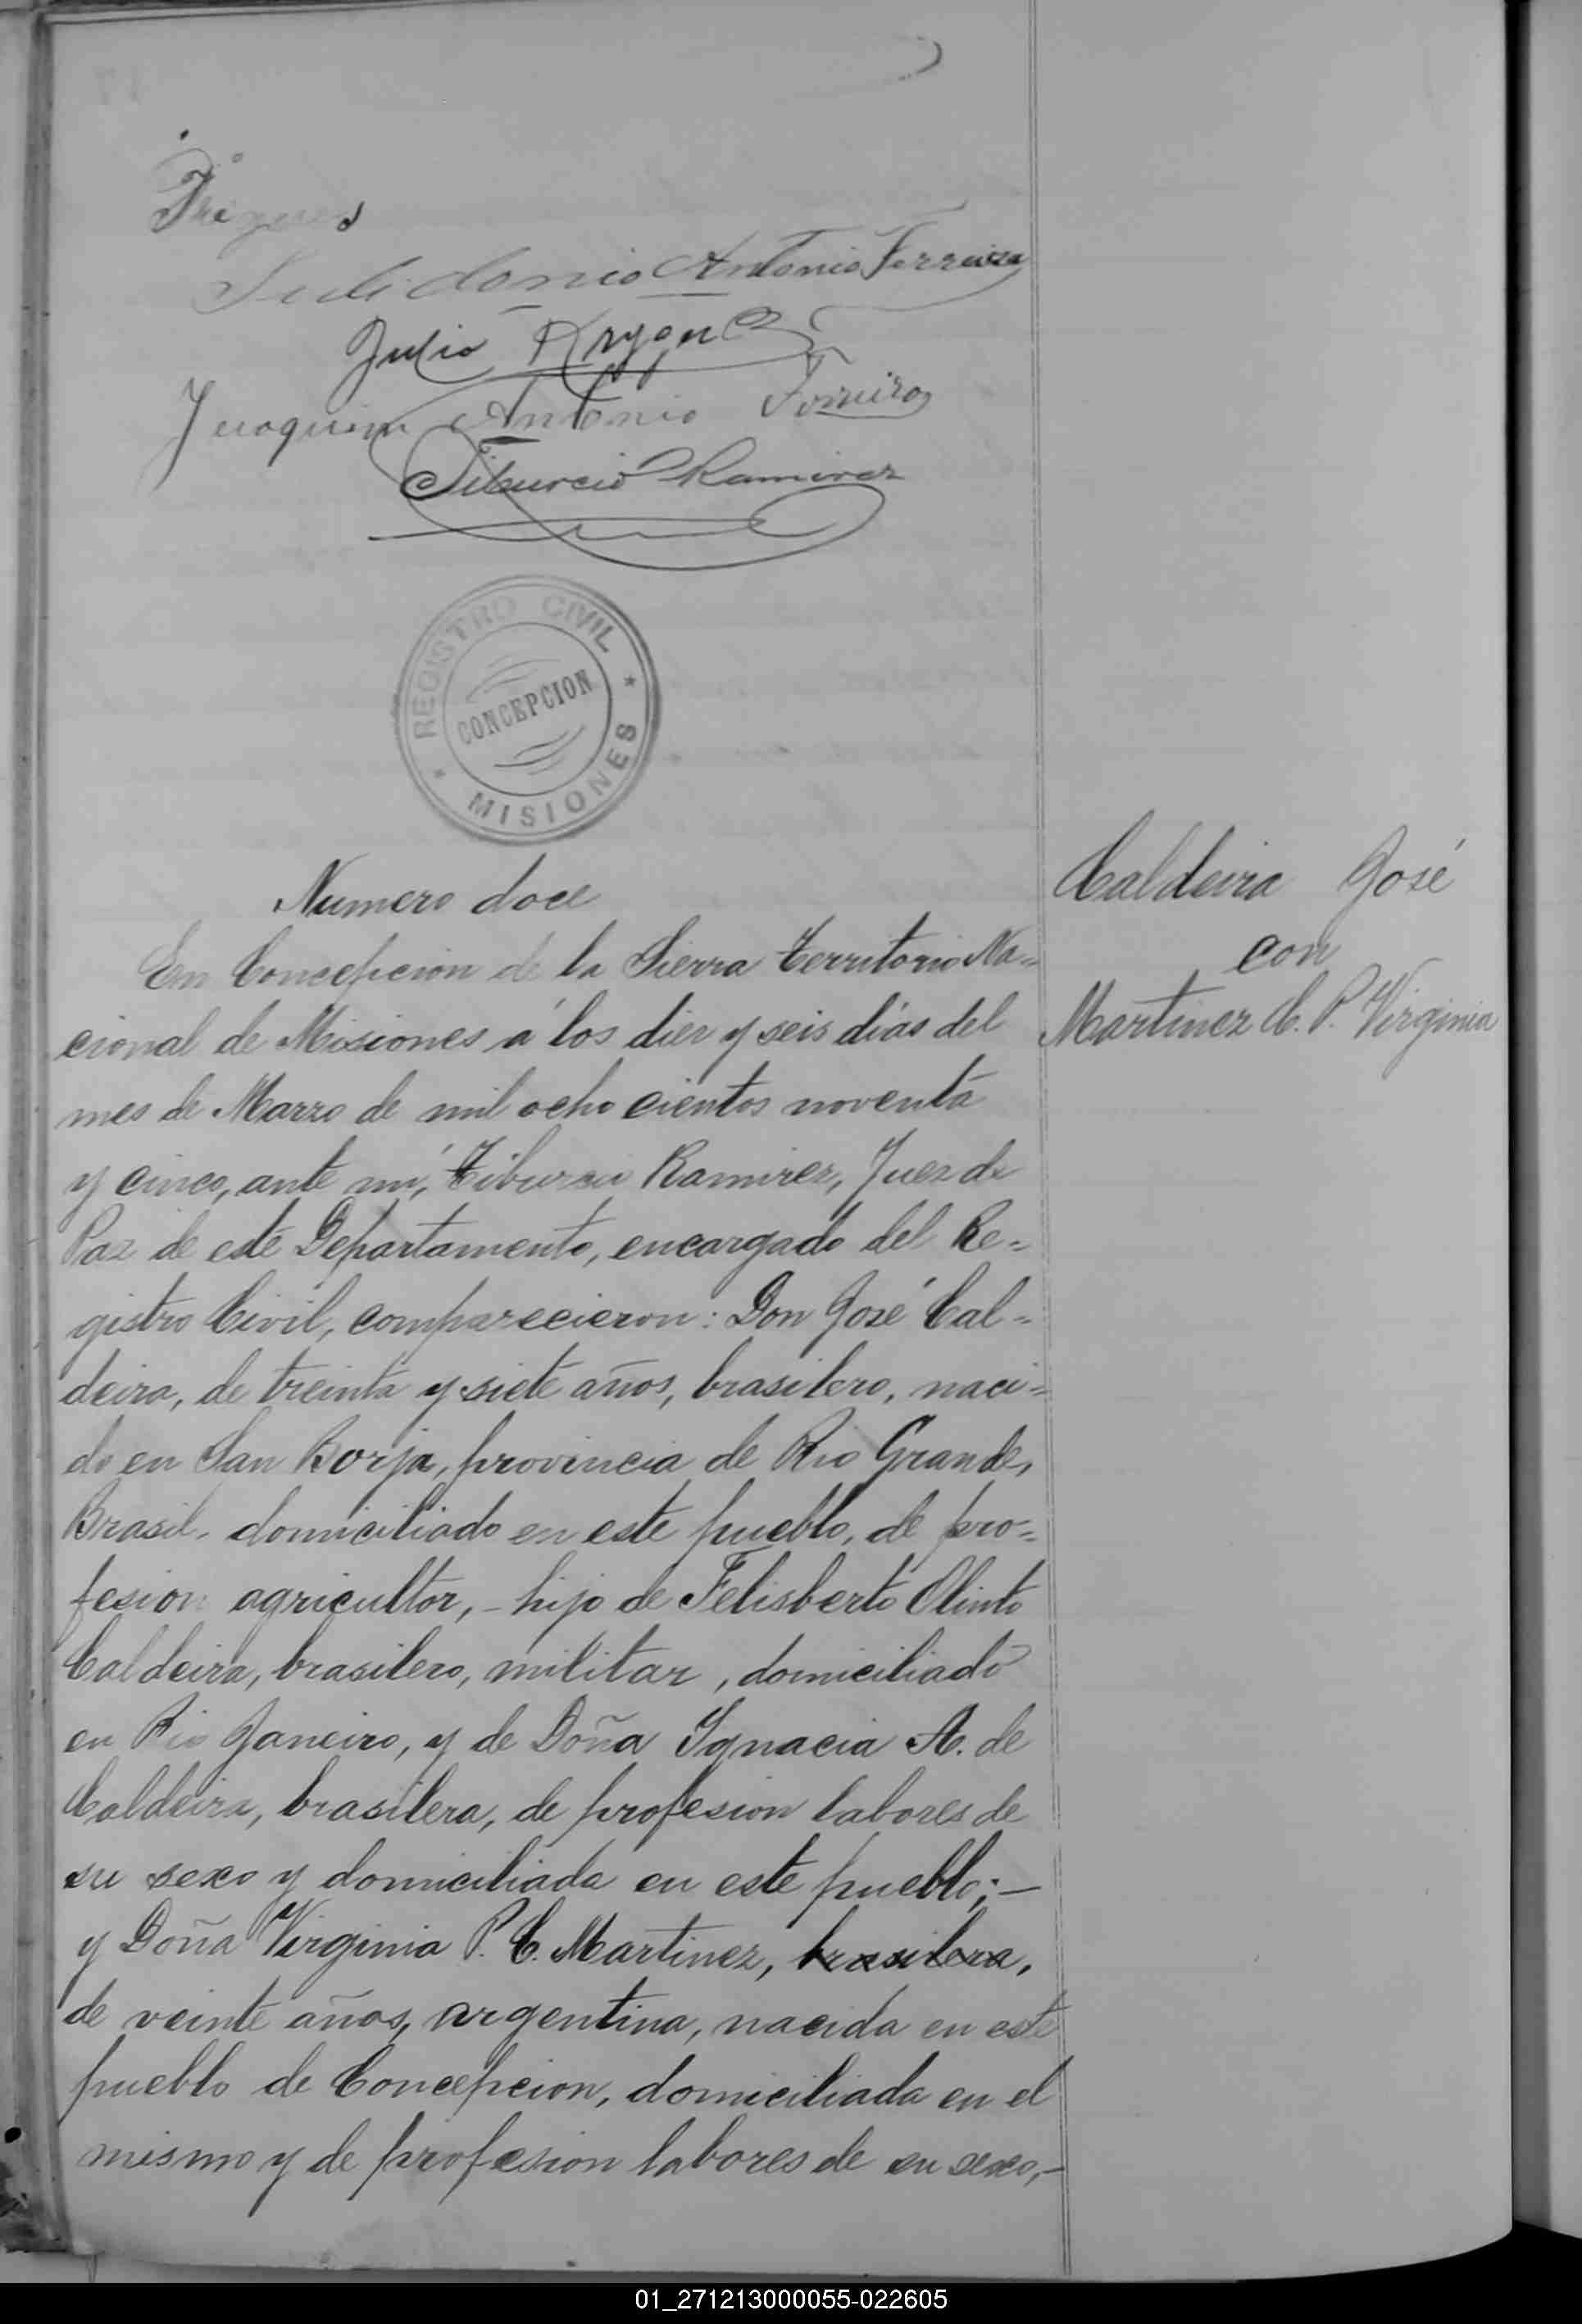 Antonio Ferreira
Julio
Antonio Ferreira
Tiburcio Ramirez
REGISTRO CIVIL
CONCEPCION
* MISIONES *
Numero doce
Caldeira José
con
Martinez C. P. Virginia
En Concepcion de la Sierra Territorio Na=
cional de Misiones á los diez y seis dias del
mes de Marzo de mil ocho cientos noventa
y cinco, ante mi, Tiburcio Ramirez, Juez de
Paz de este Departamento, encargado del Re=
gistro Civil, comparecieron: Don José Cal=
deira, de treinta y siete años, brasilero, naci=
do en San Borja, provincia de Rio Grande,
Brasil, domiciliado en este pueblo, de pro=
fesion agricultor, - hijo de Felisberto Olinto
Caldeira, brasilero, militar, domiciliado
en Rio Janeiro, y de Doña Ignacia A. de
Caldeira, brasilera, de profesion labores de
su sexo y domiciliada en este pueblo; —
y Doña Virginia P. C. Martinez, brasilera,
de veinte años, argentina, nacida en este
pueblo de Concepcion, domiciliada en el
mismo y de profesion labores de su sexo, -
01_271213000055-022605